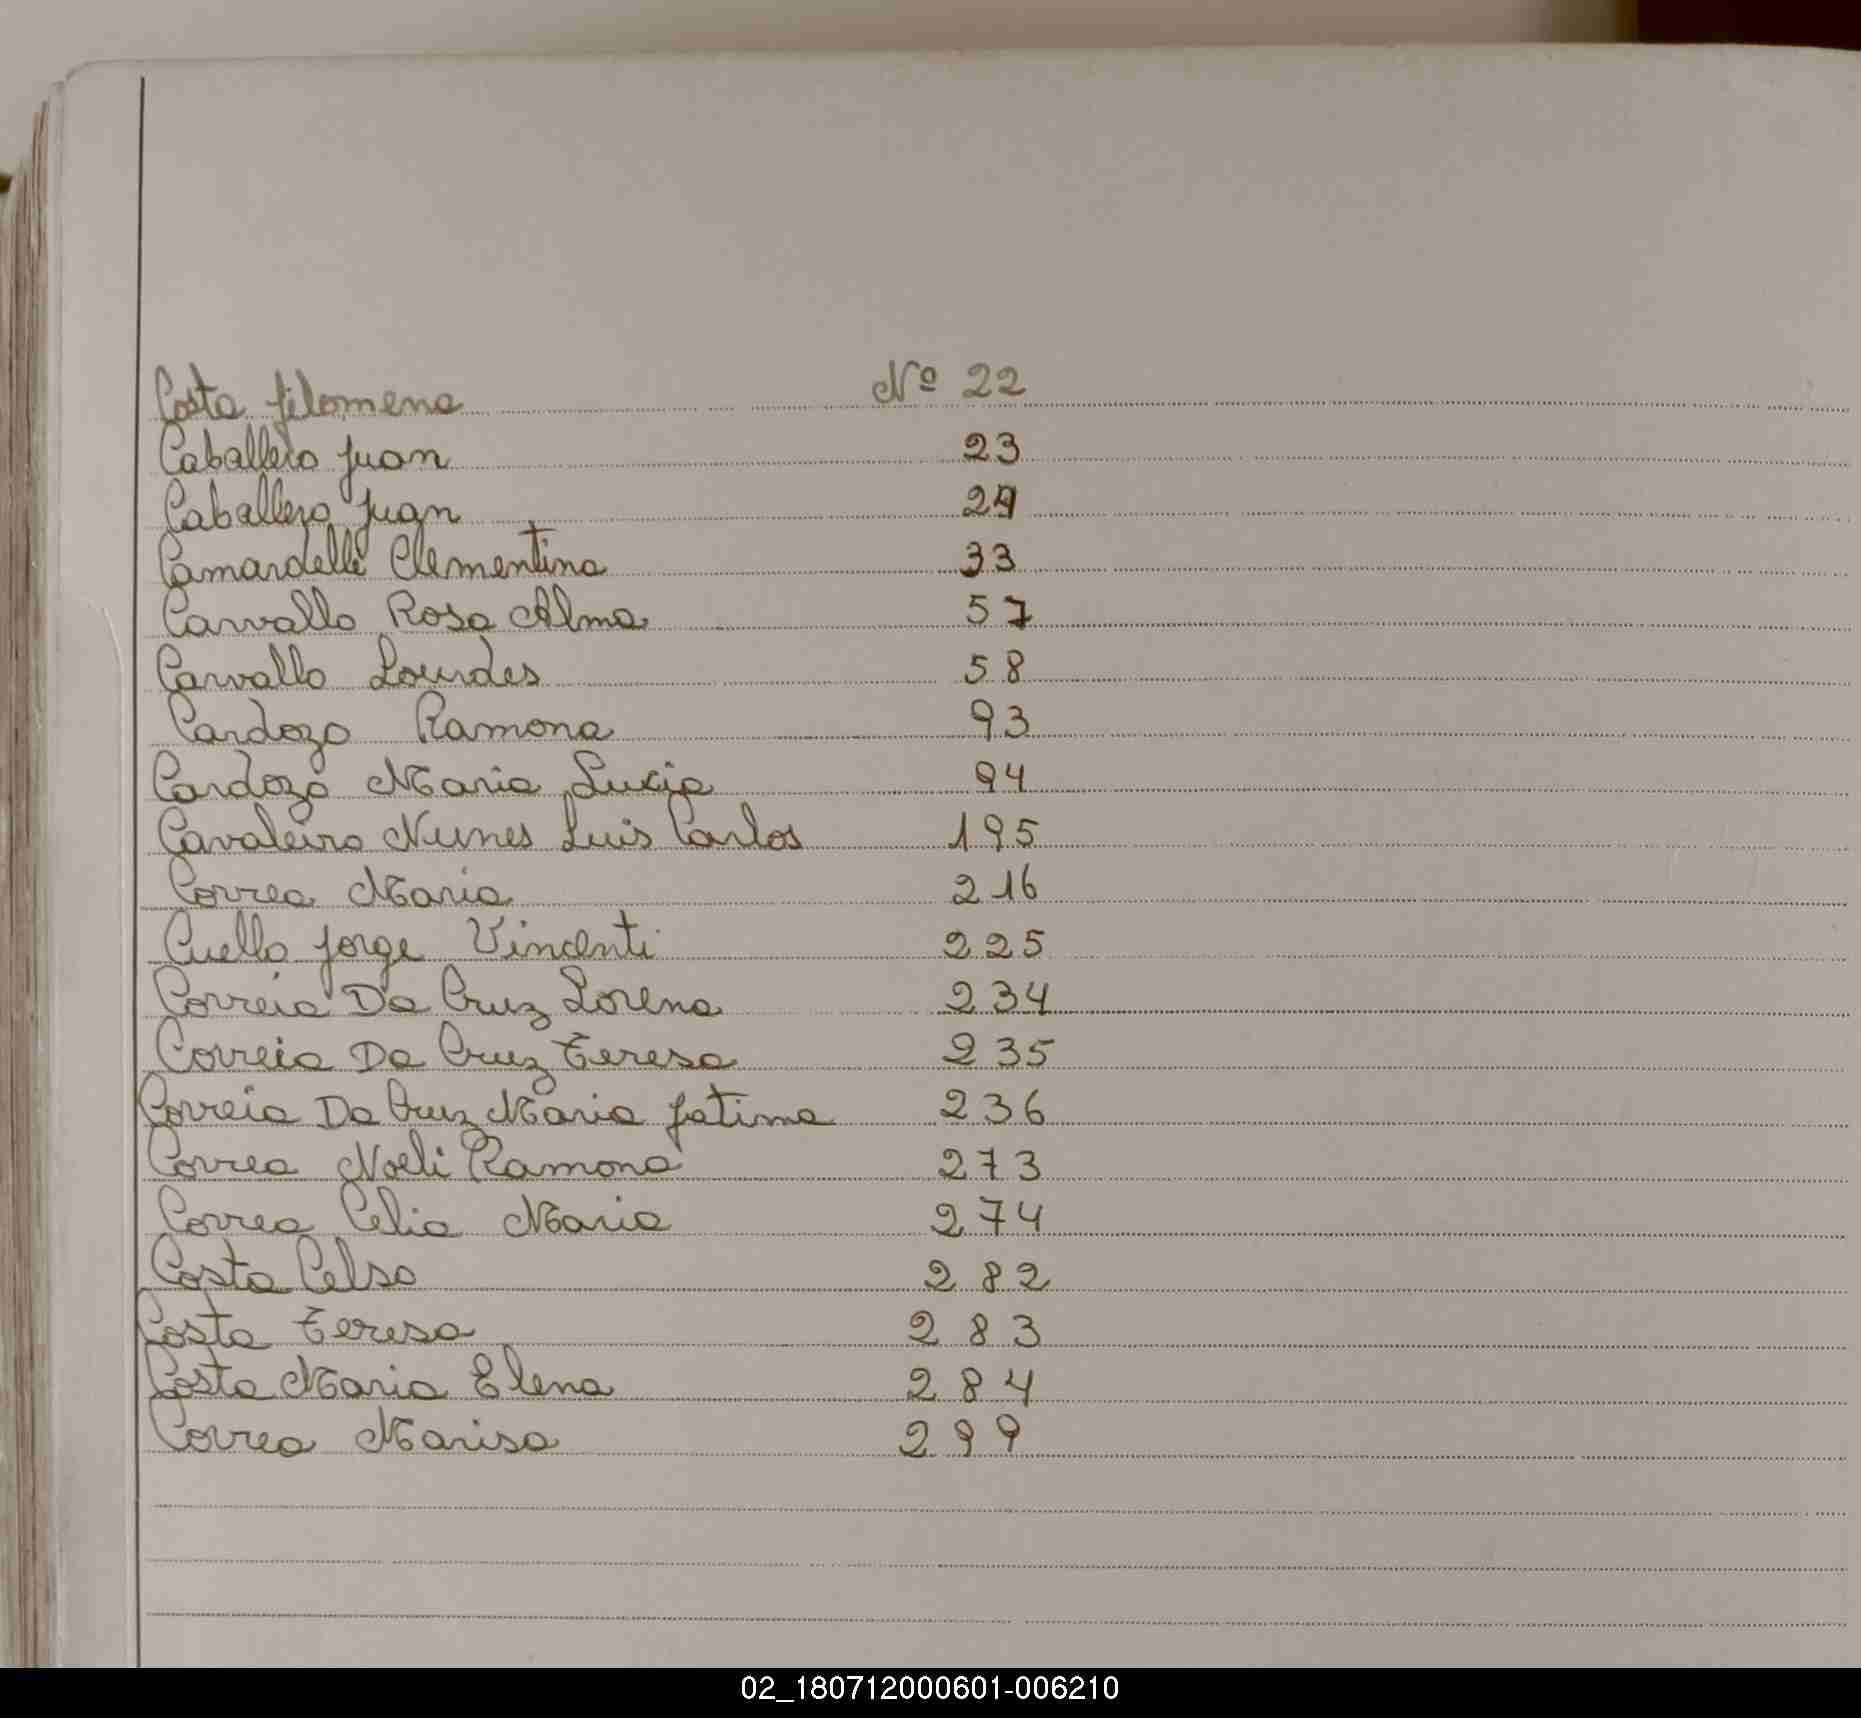 Costa filomena Nº 22
Caballero Juan 23
Caballero Juan 24
Camardelli Clementina 33
Carvallo Rosa Alma 57
Carvallo Lourdes 58
Cardozo Ramona 93
Cardozo Maria Lucia 94
Cavaleiro Nunes Luis Carlos 195
Correa Maria 216
Cuello Jorge Vincenti 225
Correia Da Cruz Lorena 234
Correia Da Cruz Teresa 235
Correia Da Cruz Maria fatima 236
Correa Noeli Ramona 273
Correa Celia Maria 274
Costa Celso 282
Costa Teresa 283
Costa Maria Elena 284
Correa Marisa 299
02_180712000601-006210